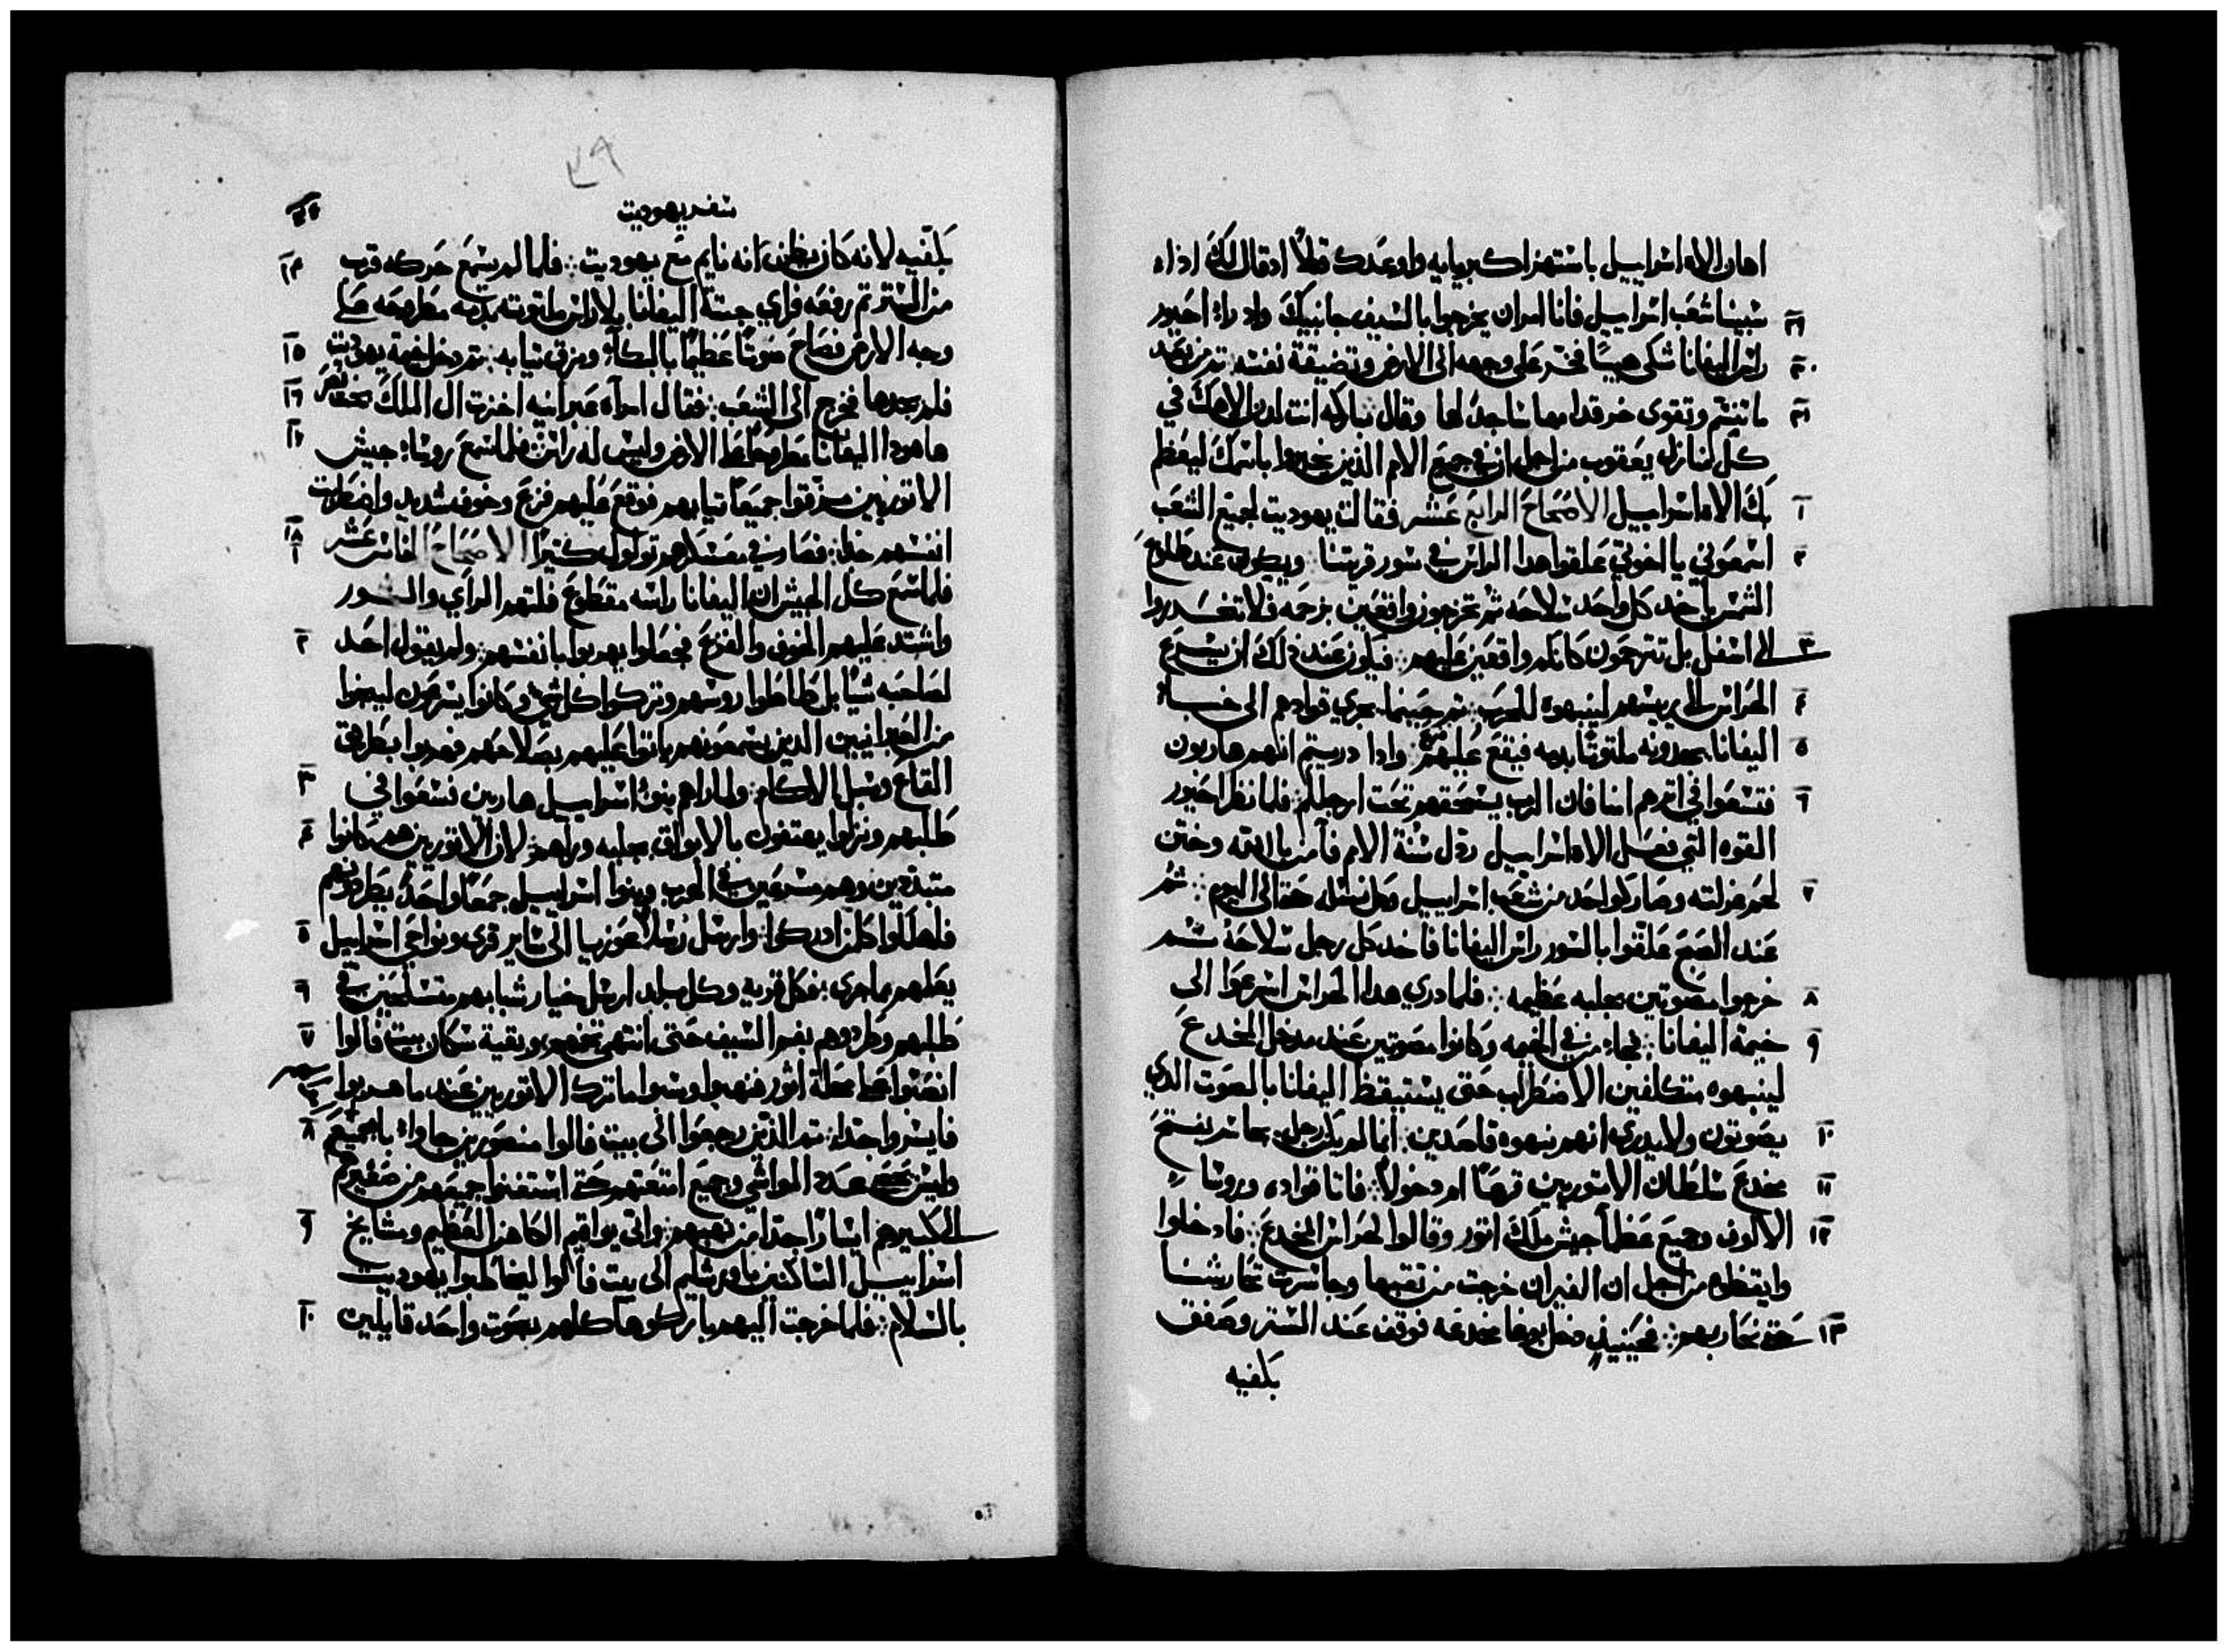 اهان الاه اسراييل باستهزا كبريايه واوعدك قتلاً اذ قال لك اذا
١٩ سبينا شعب اسراييل فانا امران يخرجوا بالسيف جانبيك واد راء احيور
٣٠ راس اليفانا شكى هيبتاً فخر على وجهه الى الارض وتضيقة نفسه ثم من بعد
٣١ ما تنسم وتقوى خر قدامها ساجداً لها وقال مباركه انت لدن الاهك في
كل منازل يعقوب من اجل ان في جميع الامم الذين يخبروا باسمك ليعظم
١ بك الاه اسراييل الاصحاح الرابع عشر فقالت يهوديت لجميع الشعب
٢ اسمعوني يا اخوتي علقوا هدا الراس في سور قريتنا ويكون عند طلوع
الشمس ياخد كل واحد سلاحه ثم تخرجون واقعين بزحمه فلا تنحدروا
٣ الى اسفل بل تترحون كانكم واقعين عليهم فيكون عند ذلك ان يسرع
٤ الحراس الى ريسهم لينبهوه للحرب ثم حينما يجري قوادهم الى خباء
٥ اليفانا يجدونه ملتوتاً بدمه فيقع عليهم وادا دريتم انهم هاربون
٦ فتسعوا في اترهم امنا فان الرب يسحقهم تحت ارجلكم فلما نظر احيور
القوه التي فعل الاه اسراييل ردل سنة الامم فآمن بالله وختن
٧ لحم عزلته وصار كواحد من شعب اسراييل وكل نسله حتى الى اليوم ثم
عند الصبح علقوا بالسور راس اليفانا فاخد كل رجل سلاحه ثم
٨ خرجوا مصوتين بجلبه عظيمه فلما دري هدا الحراس اسرعوا الى
٩ خيمة اليفانا فجاء من في الخيمه وكانوا مصوتين عند مدخل المخدع
لينبهوه متكلفين الاضطراب حتى يستيقظ اليفانا بالصوت الدي
١٠ يصوتون ولا يدري انهم نبهوه قاصدين انما لم يكن رجل يجاسر يفتح
١١ مخدع سلطان الاتوريين قرعاً او دخولاً فاتا قواده وروسا
١٢ الالوف وجميع عظما جيش ملك اتور وقالوا لحراس المخدع فادخلوا
وايقظوه من اجل ان الفيران خرجت من تقبها وجاسرت تحارشنا
١٣ حتى نحاربهم فحينيذٍ دخل بوغا مخدعه فوقف عند الستر وصفق
بكفيه
سفر يهوديت
بكفيه لانه كان يظن انه نايم مع يهوديت فلما لم يسمع حركه قرب ١٤
من الستر ثم رفعه فراي جتة اليفانا بلا راس ملتوته بدمه مطروحه على
وجه الارض فصاح صوتاً عظيماً بالبكآء ومزق تيابه ثم دخل خيمة يهوديت ١٥
فلم يجدها فخرج الى الشعب فقال امرآه عبرانيه اخزت ال الملك بختنصر ١٦
ها هودا اليفانا مطروحاً على الارض وليس له راس فلما سمع روساء جيش ١٧
الاتوريين مزقوا جميعاً تيابهم فوقع عليهم فزع وخوف شديد واضطربت
انفسهم جدا فصار في معسكرهم تولول كتيراً الاصحاح الخامس عشر ١٨ ١
فلما سمع كل الجيش ان اليفانا راسه مقطوع فلتهم الرآي والشور
واشتد عليهم الخوف والفزع فجعلوا يهربوا بانفسهم ولم يقول احد ٢
لصاحبه شياً بل طاطوا روسهم وتركوا كل شي وكانوا يسرعون لينجوا
من العبرانيين الدين يسمعونهم ياتوا عليهم بصلاحهم فهربوا بطرق
القاع وسبل الاكام ولما راهم بنوا اسراييل هاربين فسعوا في ٣
طلبهم ونزلوا يهتفون بالابواق بجلبه وراهم لان الاتوريين هم كانوا ٤
متبددين وهم مسرعين في الهرب وبنوا اسراييل جمعاً واحداً يطردونهم
فاهلكوا كل من ادركوا وارسل رسلاً عوزيا الى ساير قرى ونواحي اسراييل ٥
يعلمهم بما جرى فكل قريه وكل بلد ارسل خيار شبابهم متسلحين في ٦
طلبهم وطردوهم بفم السيف حتى انتهى تخمهم وبقية سكان بيت فالوا ٧
انصبوا على محلة اتور فنهبوا وسبوا ما ترك الاتوريين عند ما هربوا
فايسروا جداً ثم الذين رجعوا الى بيت فالوا منصورين جاواء باجمعهم ٨
وليس يحصى عدد المواشي وجميع امتعتهم حتى استغنوا جميعهم من صغيرهم
الى كبيرهم ايساراً جداً من نهبهم واتى يواقيم الكاهن العظيم ومشايخ ٩
اسراييل الساكنين باورشليم الى بيت فالوا ليخاطبوا يهوديت
بالسلام فلما خرجت اليهم باركوها كلهم بصوت واحد قايلين ١٠